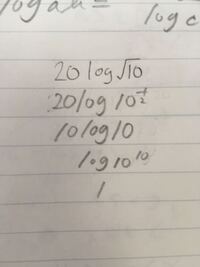 log au =
log c
20 log √10
20 log 10^½
10 log 10
log 10^10
1